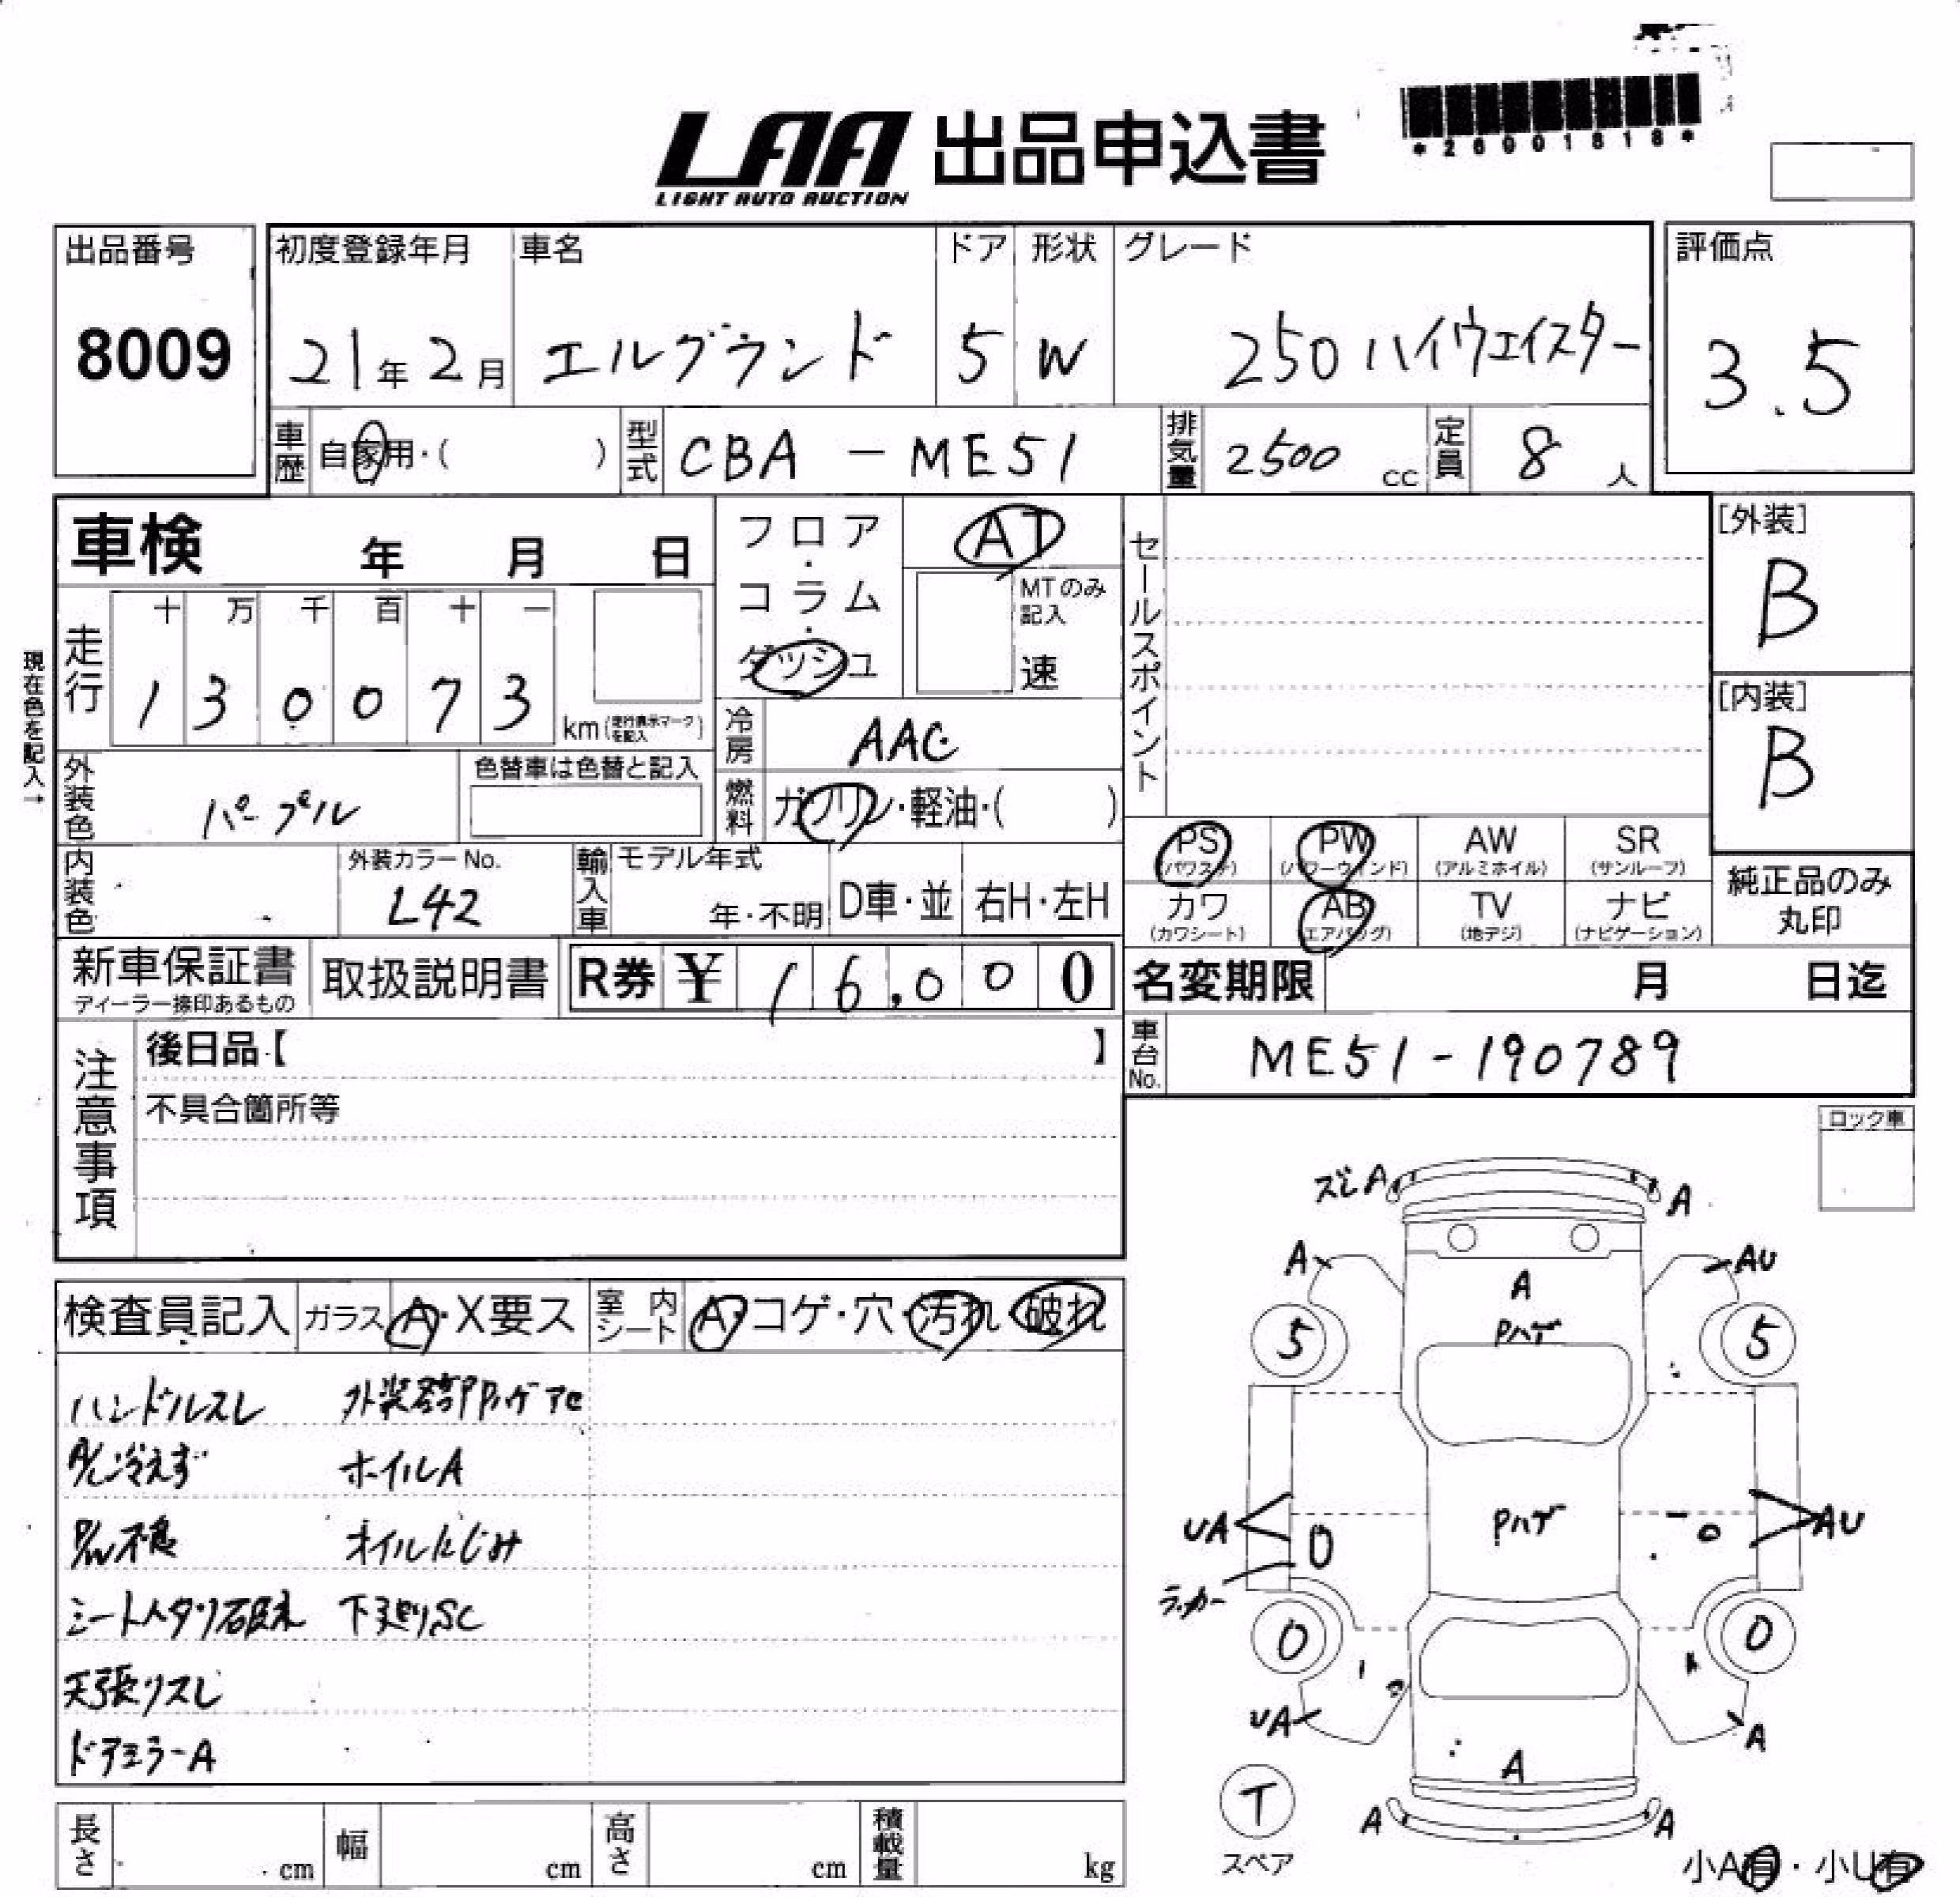 LAA 出品申込書
LIGHT AUTO AUCTION
*26001818*
出品番号
8009
初度登録年月
21年2月
車名
エルグランド
ドア
5
形状
W
グレード
250ハイウェイスター
評価点
3.5
車歴
自家用・( )
型式
CBA-ME51
排気量
2500 cc
定員
8人
車検 年 月 日
フロア・コラム・ダッシュ
AT
MTのみ記入
速
セールスポイント
[外装]
B
[内装]
B
現在色を記入→
走行
十 万 千 百 十 一
1 3 0 0 7 3
km(走行表示マークを記入)
冷房
AAC
外装色
パープル
色替車は色替と記入
燃料
ガソリン・軽油・( )
内装色
外装カラーNo.
L42
輸入車
モデル年式
年・不明
D車・並
右H・左H
PS
(パワステ)
PW
(パワーウインド)
AW
(アルミホイル)
SR
(サンルーフ)
カワ
(カワシート)
AB
(エアバッグ)
TV
(地デジ)
ナビ
(ナビゲーション)
純正品のみ
丸印
新車保証書
ディーラー捺印あるもの
取扱説明書
R券 ¥ 16,000
名変期限 月 日迄
車台No.
ME51-190789
注意事項
後日品【 】
不具合箇所等
ロック車
検査員記入
ガラス A・X要ス
室内シート A・コゲ・穴・汚れ 破れ
ハンドルスレ
A/C冷えず ホイルA
P/W不良 オイルにじみ
シートヘタリ破れ 下廻りSC
天張リスレ
ドアミラーA
ズレA A
A AU
A
Pハゲ
5 5
UA 0 Pハゲ AU
ラッカー
0 0
UA A
A
T
スペア
A A
小A有・小U有
長さ cm
幅 cm
高さ cm
積載量 kg